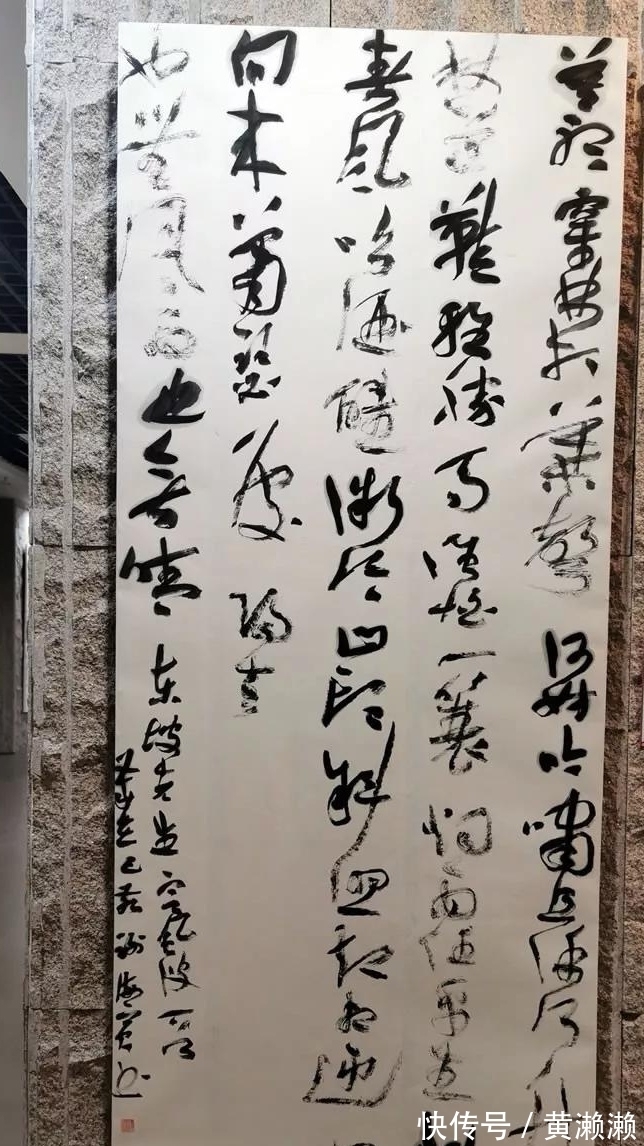 莫听穿林打叶声何妨吟啸且徐行
竹杖芒鞋轻胜马谁怕一蓑烟雨任平生
春风吹酒醒微冷山头斜照却相迎
向来萧瑟处归去
也无风雨也无晴 东坡先生定风波一词
己亥
快传号/黄濑濑